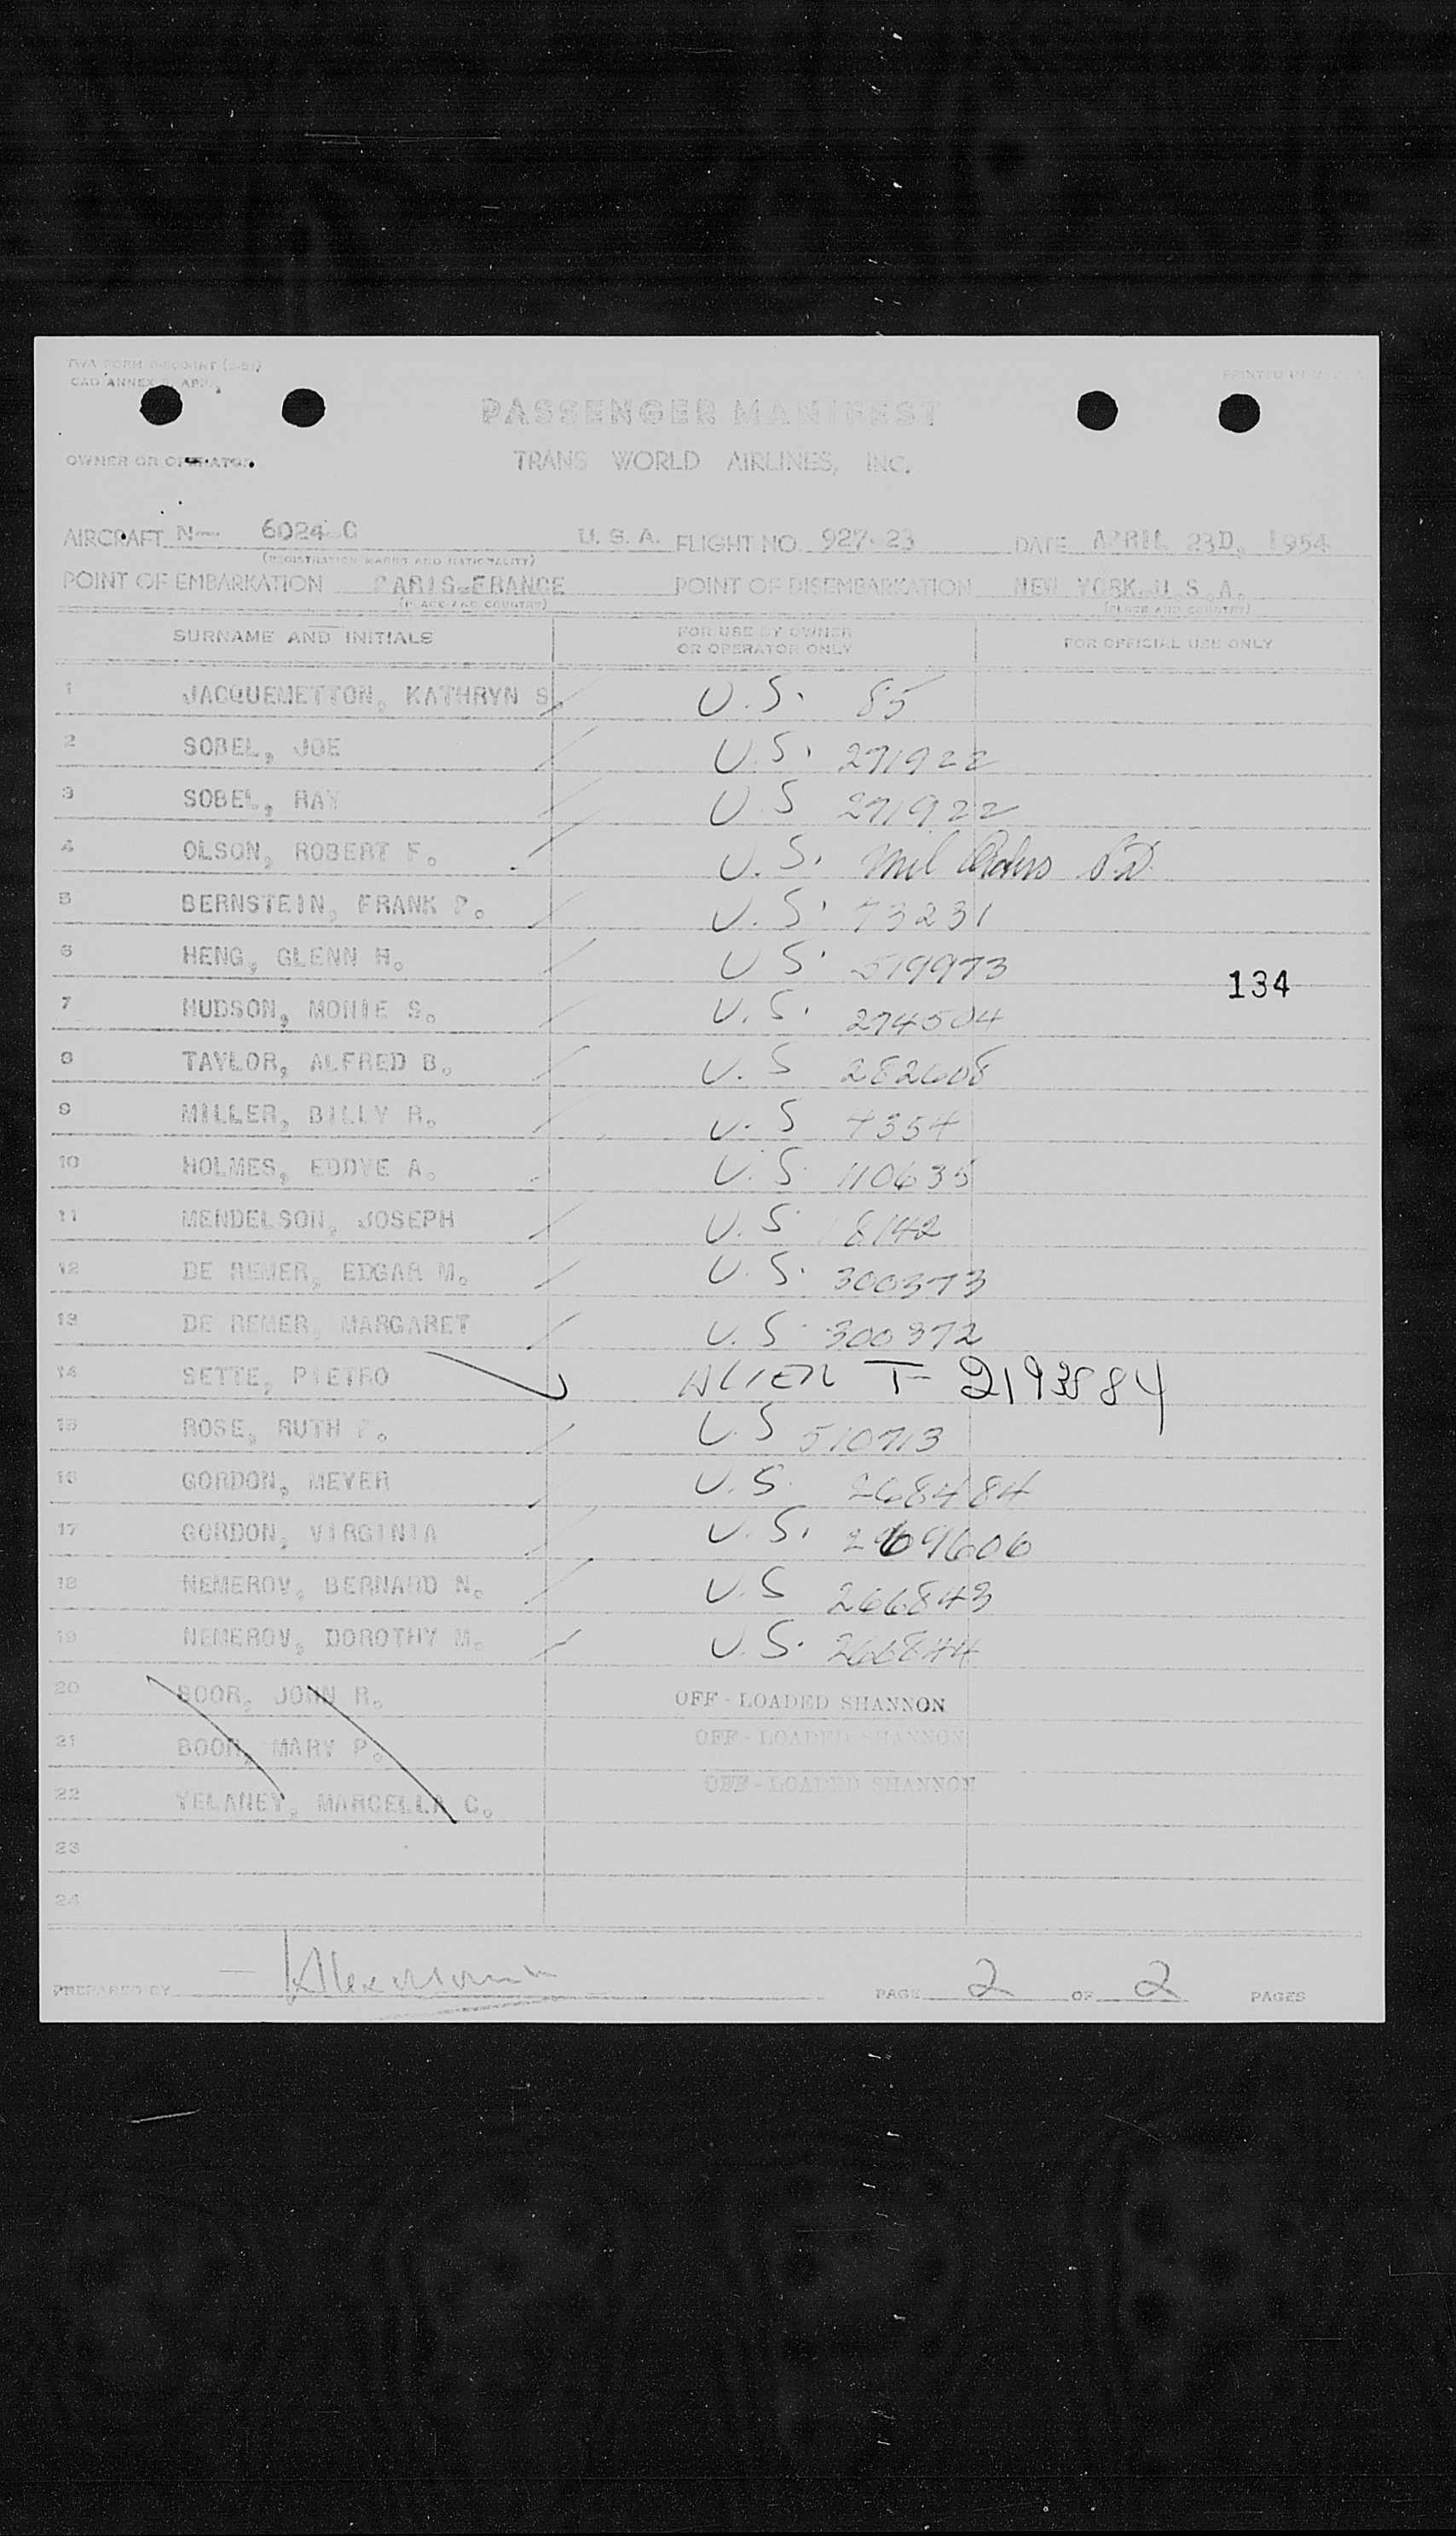 TWA FORM
CAO ANNEX
PRINTED IN U. S. A.
PASSENGER MANIFEST
OWNER OR OPERATOR
TRANS WORLD AIRLINES, INC.
AIRCRAFT N- 6024 C U. S. A. FLIGHT NO. 927-23 DATE APRIL 23D, 1954
(REGISTRATION MARKS AND NATIONALITY)
POINT OF EMBARKATION PARIS-FRANCE POINT OF DISEMBARKATION NEW YORK U.S.A.
(PLACE AND COUNTRY) (PLACE AND COUNTRY)
SURNAME AND INITIALS FOR USE BY OWNER OR OPERATOR ONLY FOR OFFICIAL USE ONLY
1 JACQUEMETTON, KATHRYN S. U.S. 85
2 SOBEL, JOE U.S. 271922
3 SOBEL, RAY U.S 271922
4 OLSON, ROBERT F. U.S. Mil Orders
5 BERNSTEIN, FRANK P. U.S. 73231
6 HENG, GLENN H. U S. 519973
134
7 HUDSON, MONIE S. U.S. 274504
8 TAYLOR, ALFRED B. U.S 282608
9 MILLER, BILLY R. U.S 4354
10 HOLMES, EDDYE A. U.S. 110635
11 MENDELSON, JOSEPH U.S. 8142
12 DE REMER, EDGAR M. U.S. 300373
13 DE REMER, MARGARET U.S. 300372
14 SETTE, PIETRO ALIEN T-
15 ROSE, RUTH U.S 510713
16 GORDON, MEYER U.S. 268484
17 GORDON, VIRGINIA U.S. 269606
18 NEMEROV, BERNARD N. U.S 266843
19 NEMEROV, DOROTHY M. U.S. 266844
20 BOOR, JOHN R. OFF-LOADED SHANNON
21 BOOR, MARY P. OFF-LOADED SHANNON
OFF-LOADED SHANNON
22 YELANEY, MARCELLA C.
23
24
PREPARED BY PAGE 2 OF 2 PAGES